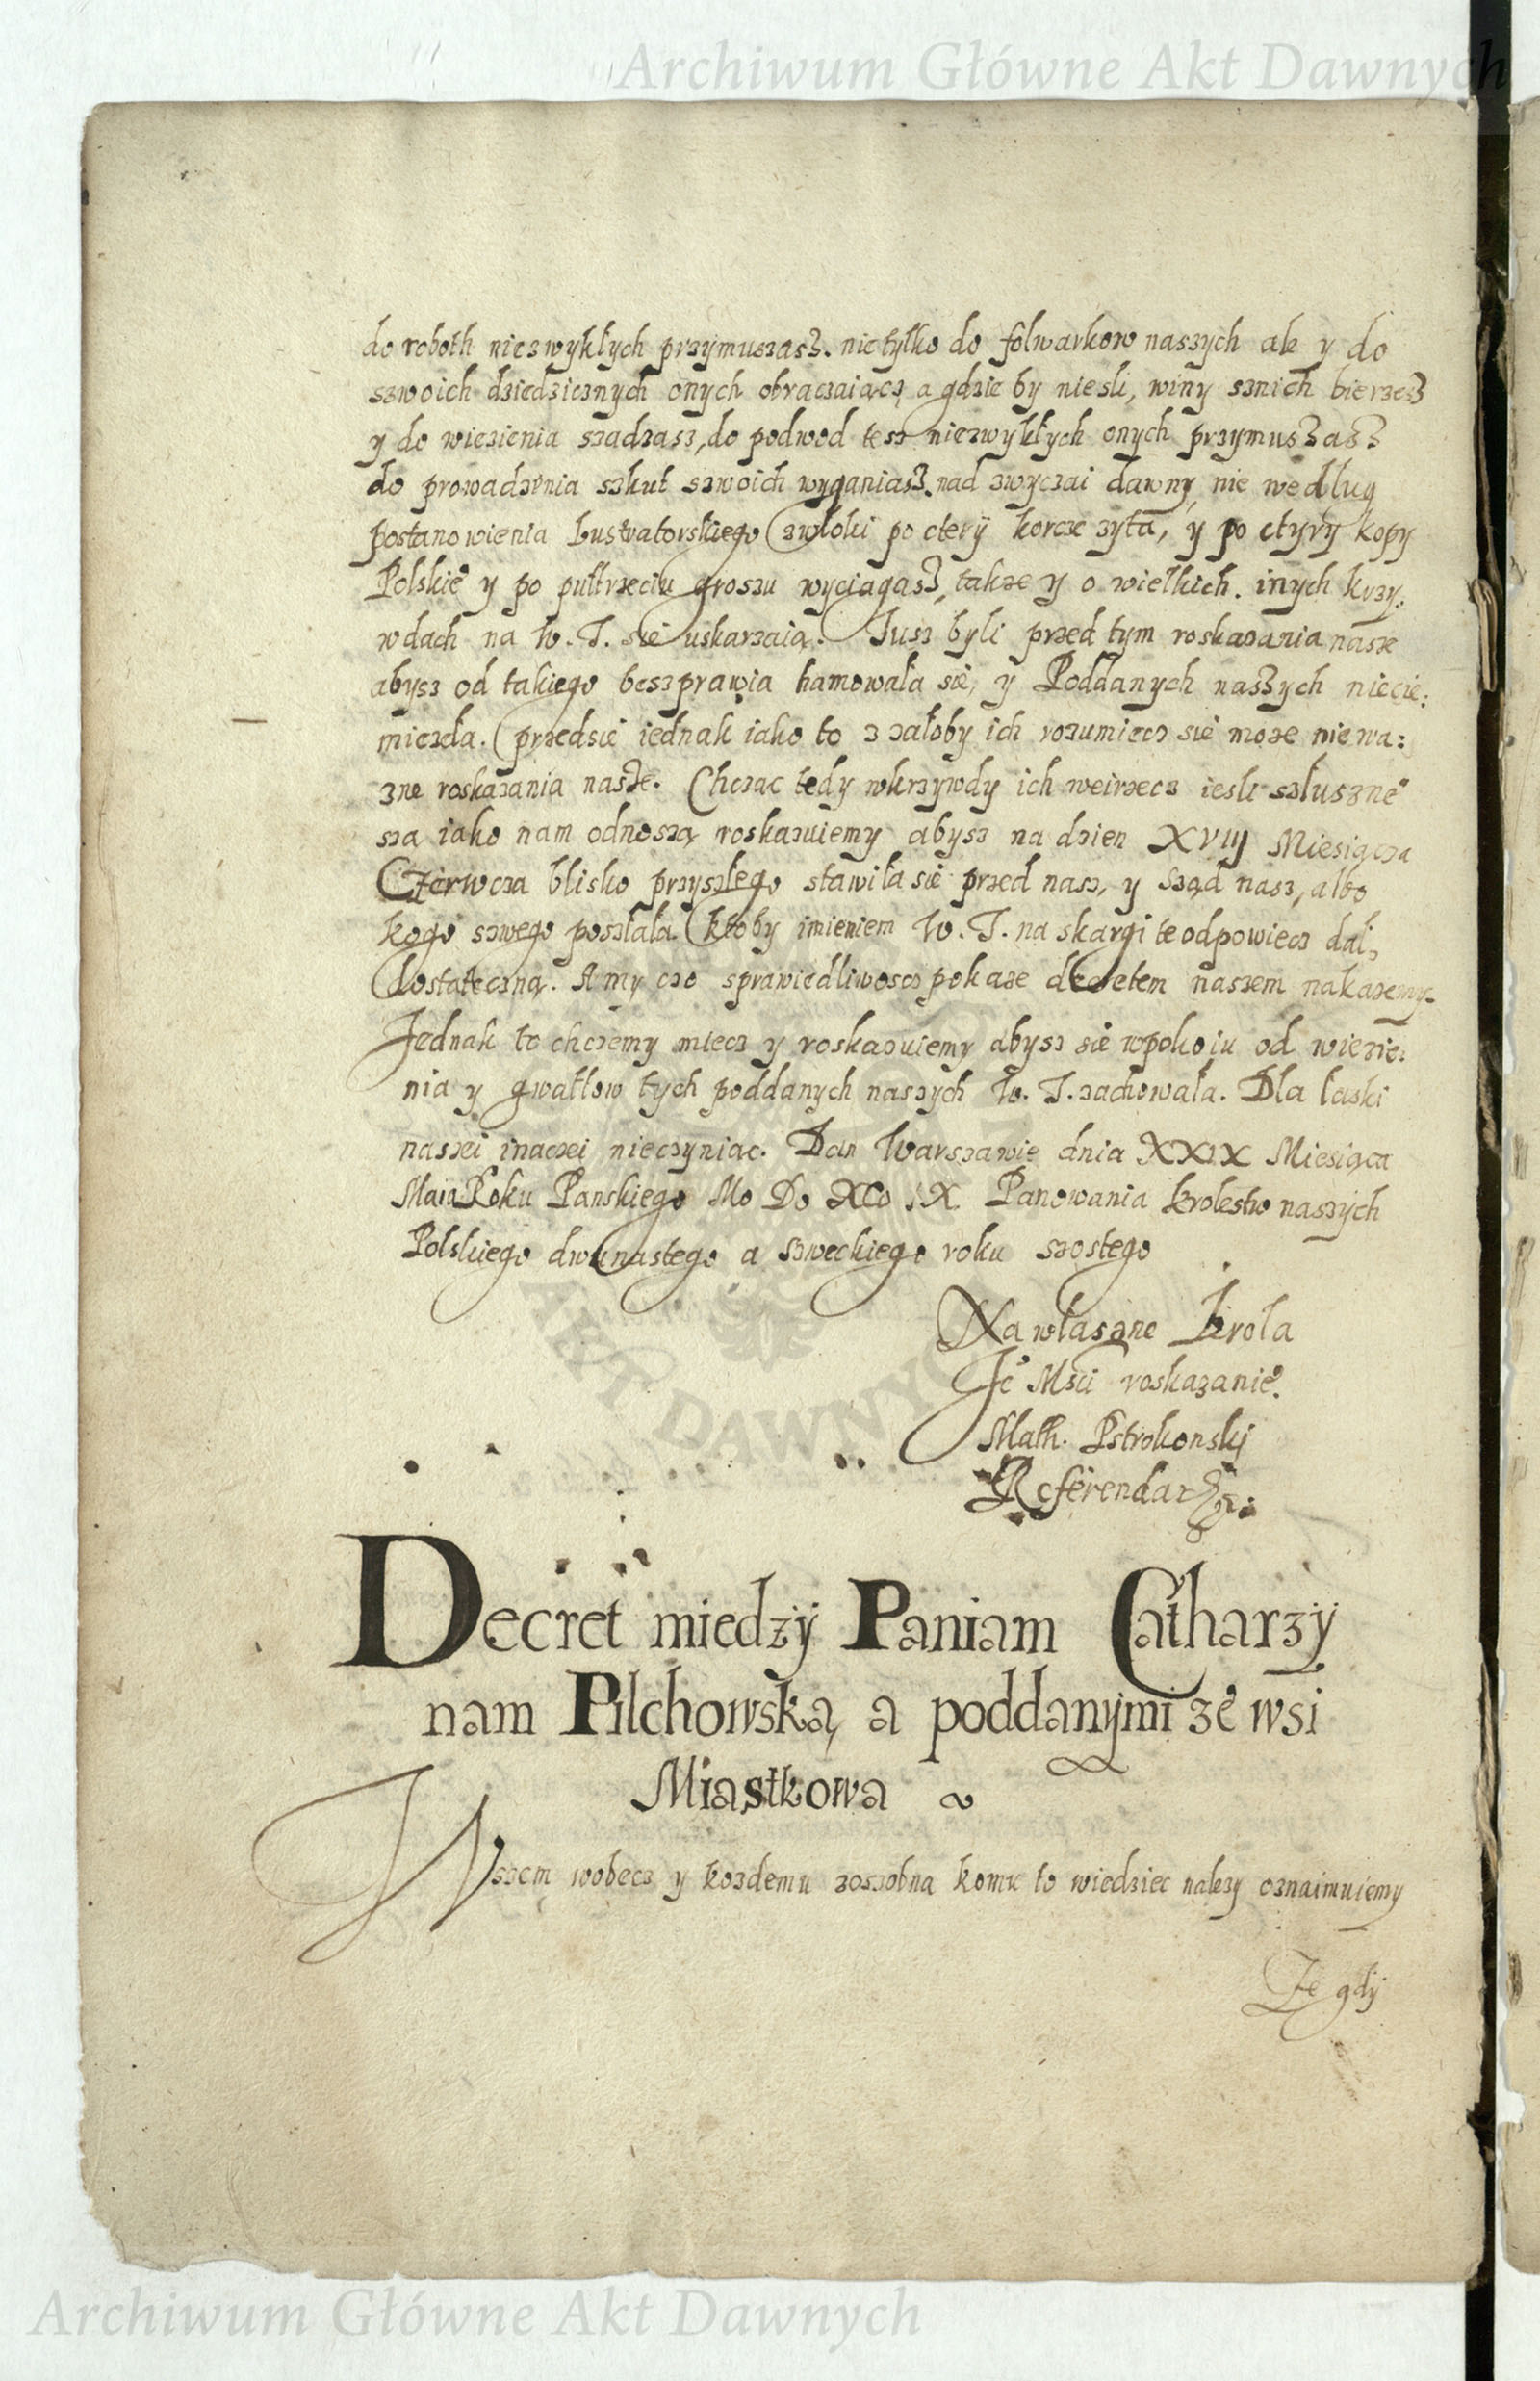 Archiwum Główne Akt Dawnych
do roboth niezwykłych przymuszasz. nie tylko do folwarkow naszych ale y do
szwoich dziedzicznych onych obraczaiącz, a gdzie by nie szli, winy sznich bierzesz
y do wiezienia szadzasz, do podwod tesz niezwykłych onych przymuszasz
do prowadzenia szkut szwoich wyganiasz. nad zwyczai dawny, nie według
postanowienia Lustratorskiego zwłoki po ctery korcze zyta, y po ctyry kopy
Polskie y po pułtrzeciu groszu wyciągasz, takze y o wielkich. inych krzy:
wdach na W. T. sie uskarzaią. Jusz byli przed tym roskazania nasze
abysz od takiego beszprawia hamowała sie, y Poddanych naszych niecie:
miezła. przedsie iednak iako to z załoby ich rozumiecz sie moze niewa:
zne roskazania nasze. Chczac tedy wkrzywdy ich weirzecz iesli szluszne
sza iako nam odnoszą roskazuiemy abysz na dzien XVIIJ Miesiącza
Czerwcza blisko przyszłego stawiła sie przed nasz, y Sząd nasz, albo
kogo szwego poszłała ktoby imieniem W. T. na skargi te odpowiecz dał,
dostateczną. A my czo sprawiedliwoscz pokaze decretem naszem nakazemy.
Jednak to chczemy miecz y roskazuiemy abysz sie wpokoiu od wiezie:
nia y gwałtow tych poddanych naszych W. T. zachowała. Dla łaski
naszei inaczei nieczyniąc. Dan Warszawie dnia XXIX Miesiąca
Maia Roku Panskiego Mo Do XCo IX Panowania krolestw naszych
Polskiego dwunastego a Szweckiego roku szostego
Na własżne Krola
Je Msci roskazanie.
Math. Pstrokonski
Referendarz
Decret miedzy Paniam Catharzy
nam Pilchowską, a poddanymi ze wsi
Miastkowa
Wszem wobecz y kozdemu zoszobna komu to wiedziec nalezy oznaimuiemy
Ze gdy
AKT DAWNYCH
Archiwum Główne Akt Dawnych